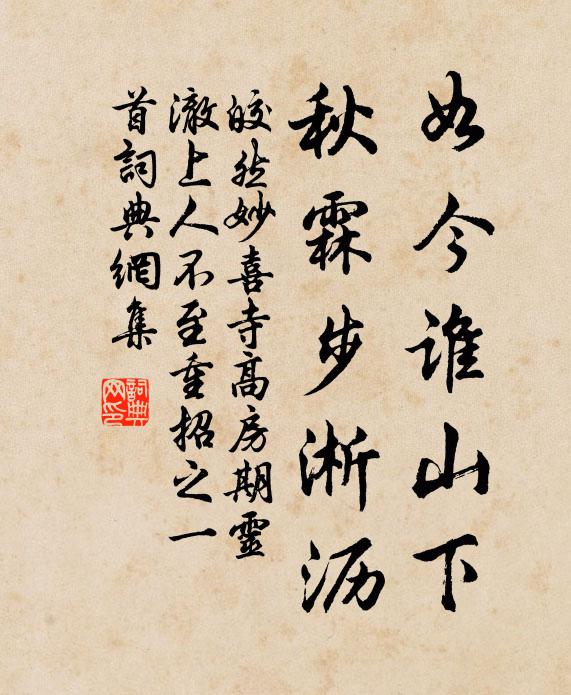 如今谁山下
秋霖步淅沥
皎然妙喜寺高房期靈
澈上人不至重招之一
首詞典網集
詞典网印